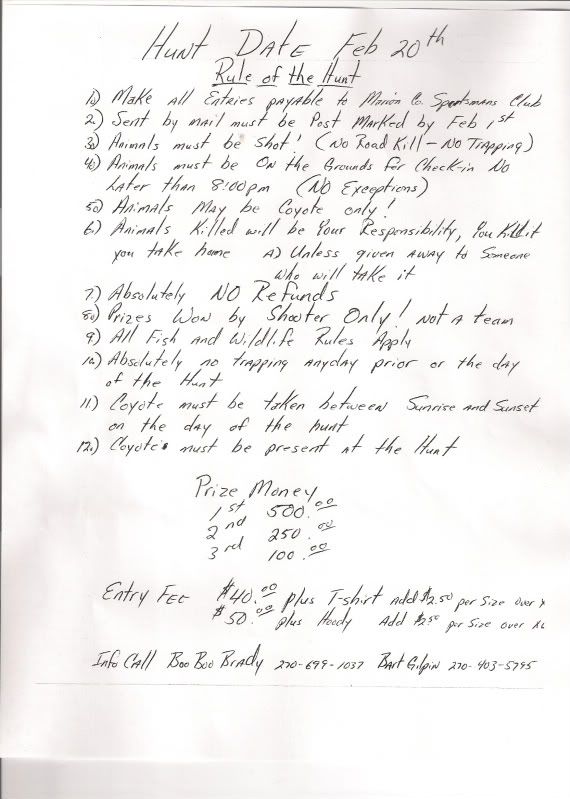 Hunt Date Feb 20th
Rule of the Hunt
1.) Make All Entries payable to Marion Co. Sportsmans Club
2.) Sent by mail must be Post Marked by Feb 1st
3.) Animals must be Shot! (No Road Kill - No Trapping)
4.) Animals must be On the Grounds for Check-in No
Later than 8:00pm (NO Exceptions)
5.) Animals May be Coyote only!
6.) Animals Killed will be Your Responsibility, You Kill it
you take home A) Unless given away to Someone
who will take it
7.) Absolutely NO Refunds
8.) Prizes Won by Shooter Only! Not A team
9.) All Fish and Wildlife Rules Apply
10.) Absolutely no trapping anyday prior or the day
of the Hunt
11.) Coyote must be taken between Sunrise and Sunset
on the day of the hunt
12.) Coyote's must be present at the Hunt
Prize Money
1st 500.00
2nd 250.00
3rd 100.00
Entry Fee $40.00 plus T-shirt Add $2.50 per Size over X
$50.00 plus Hoody Add $2.50 per Size over XL
Info Call Boo Boo Brady 270-699-1037 Bart Gilpin 270-403-5795